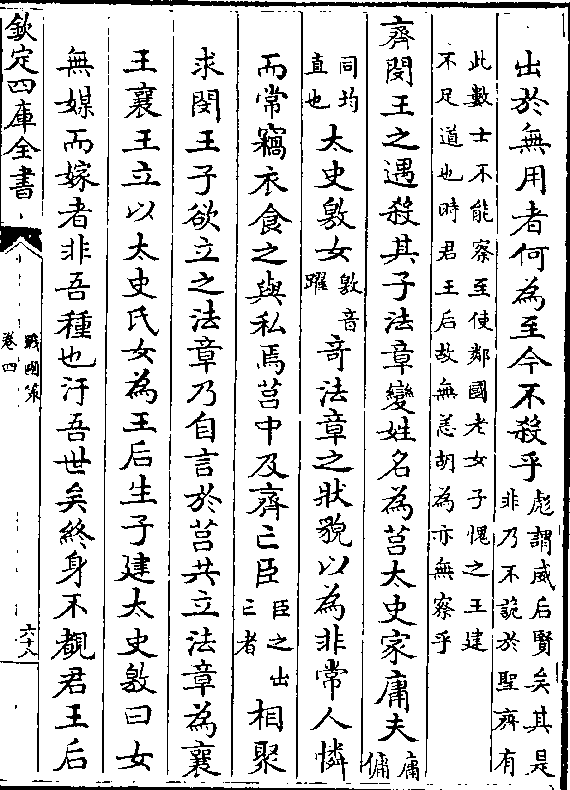 出於無用者何為至今不殺乎彪謂威后賢矣其是
非乃不詭於聖齊有
此數士不能察至使鄰國老女子愧之王建
不足道也時君王后故無恙胡為亦無察乎
齊閔王之遇殺其子法章變姓名為莒太史家庸夫庸
傭
同均
直也太史敫女敫音
躍奇法章之狀貌以為非常人憐
而常竊衣食之與私焉莒中及齊亡臣臣之出
亡者相聚
求閔王子欲立之法章乃自言於莒共立法章為襄
王襄王立以太史氏女為王后生子建太史敫曰女
無媒而嫁者非吾種也汙吾世矣終身不覩君王后
欽定四庫全書
戰國策
卷四
六十八